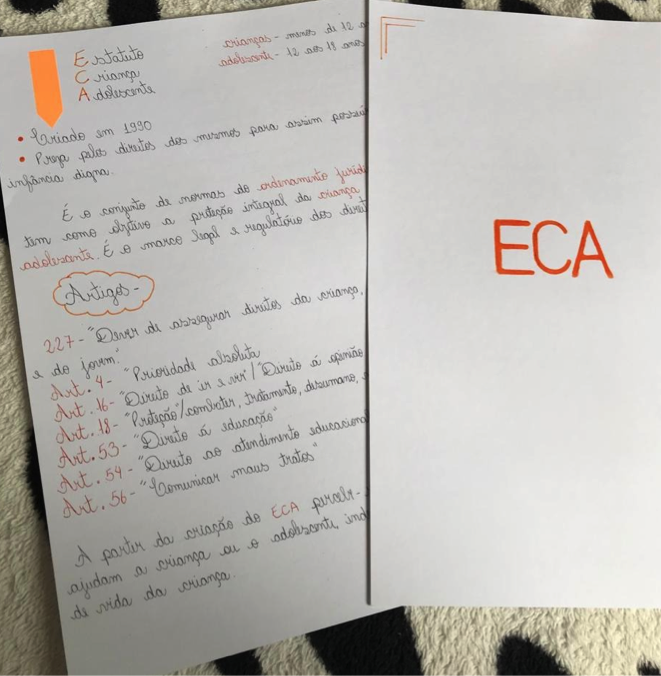 Estatuto
Criança
Adolescente
crianças - menos de 12 a
adolescente - 12 aos 18 anos
• Criado em 1990
• Preza pelos direitos dos mesmos para assim possuí
infância digna.
É o conjunto de normas do ordenamento juríd
tem como objetivo a proteção integral da criança
adolescente. É o marco legal e regulatório dos direit
Artigos-
227- "Dever de assegurar direitos da criança,
e do jovem."
Art. 4- "Prioridade absoluta
Art. 16- "Direito de ir e vir"/"Direito á opinião
Art. 18- "Proteção"/combater, tratamento, desumano,
Art. 53- "Direito á educação"
Art. 54- "Direito ao atendimento educacional
Art. 56- "Comunicar maus tratos"
A partir da criação do ECA perceb-
ajudam a criança ou o adolescente, ind
de vida da criança.
ECA